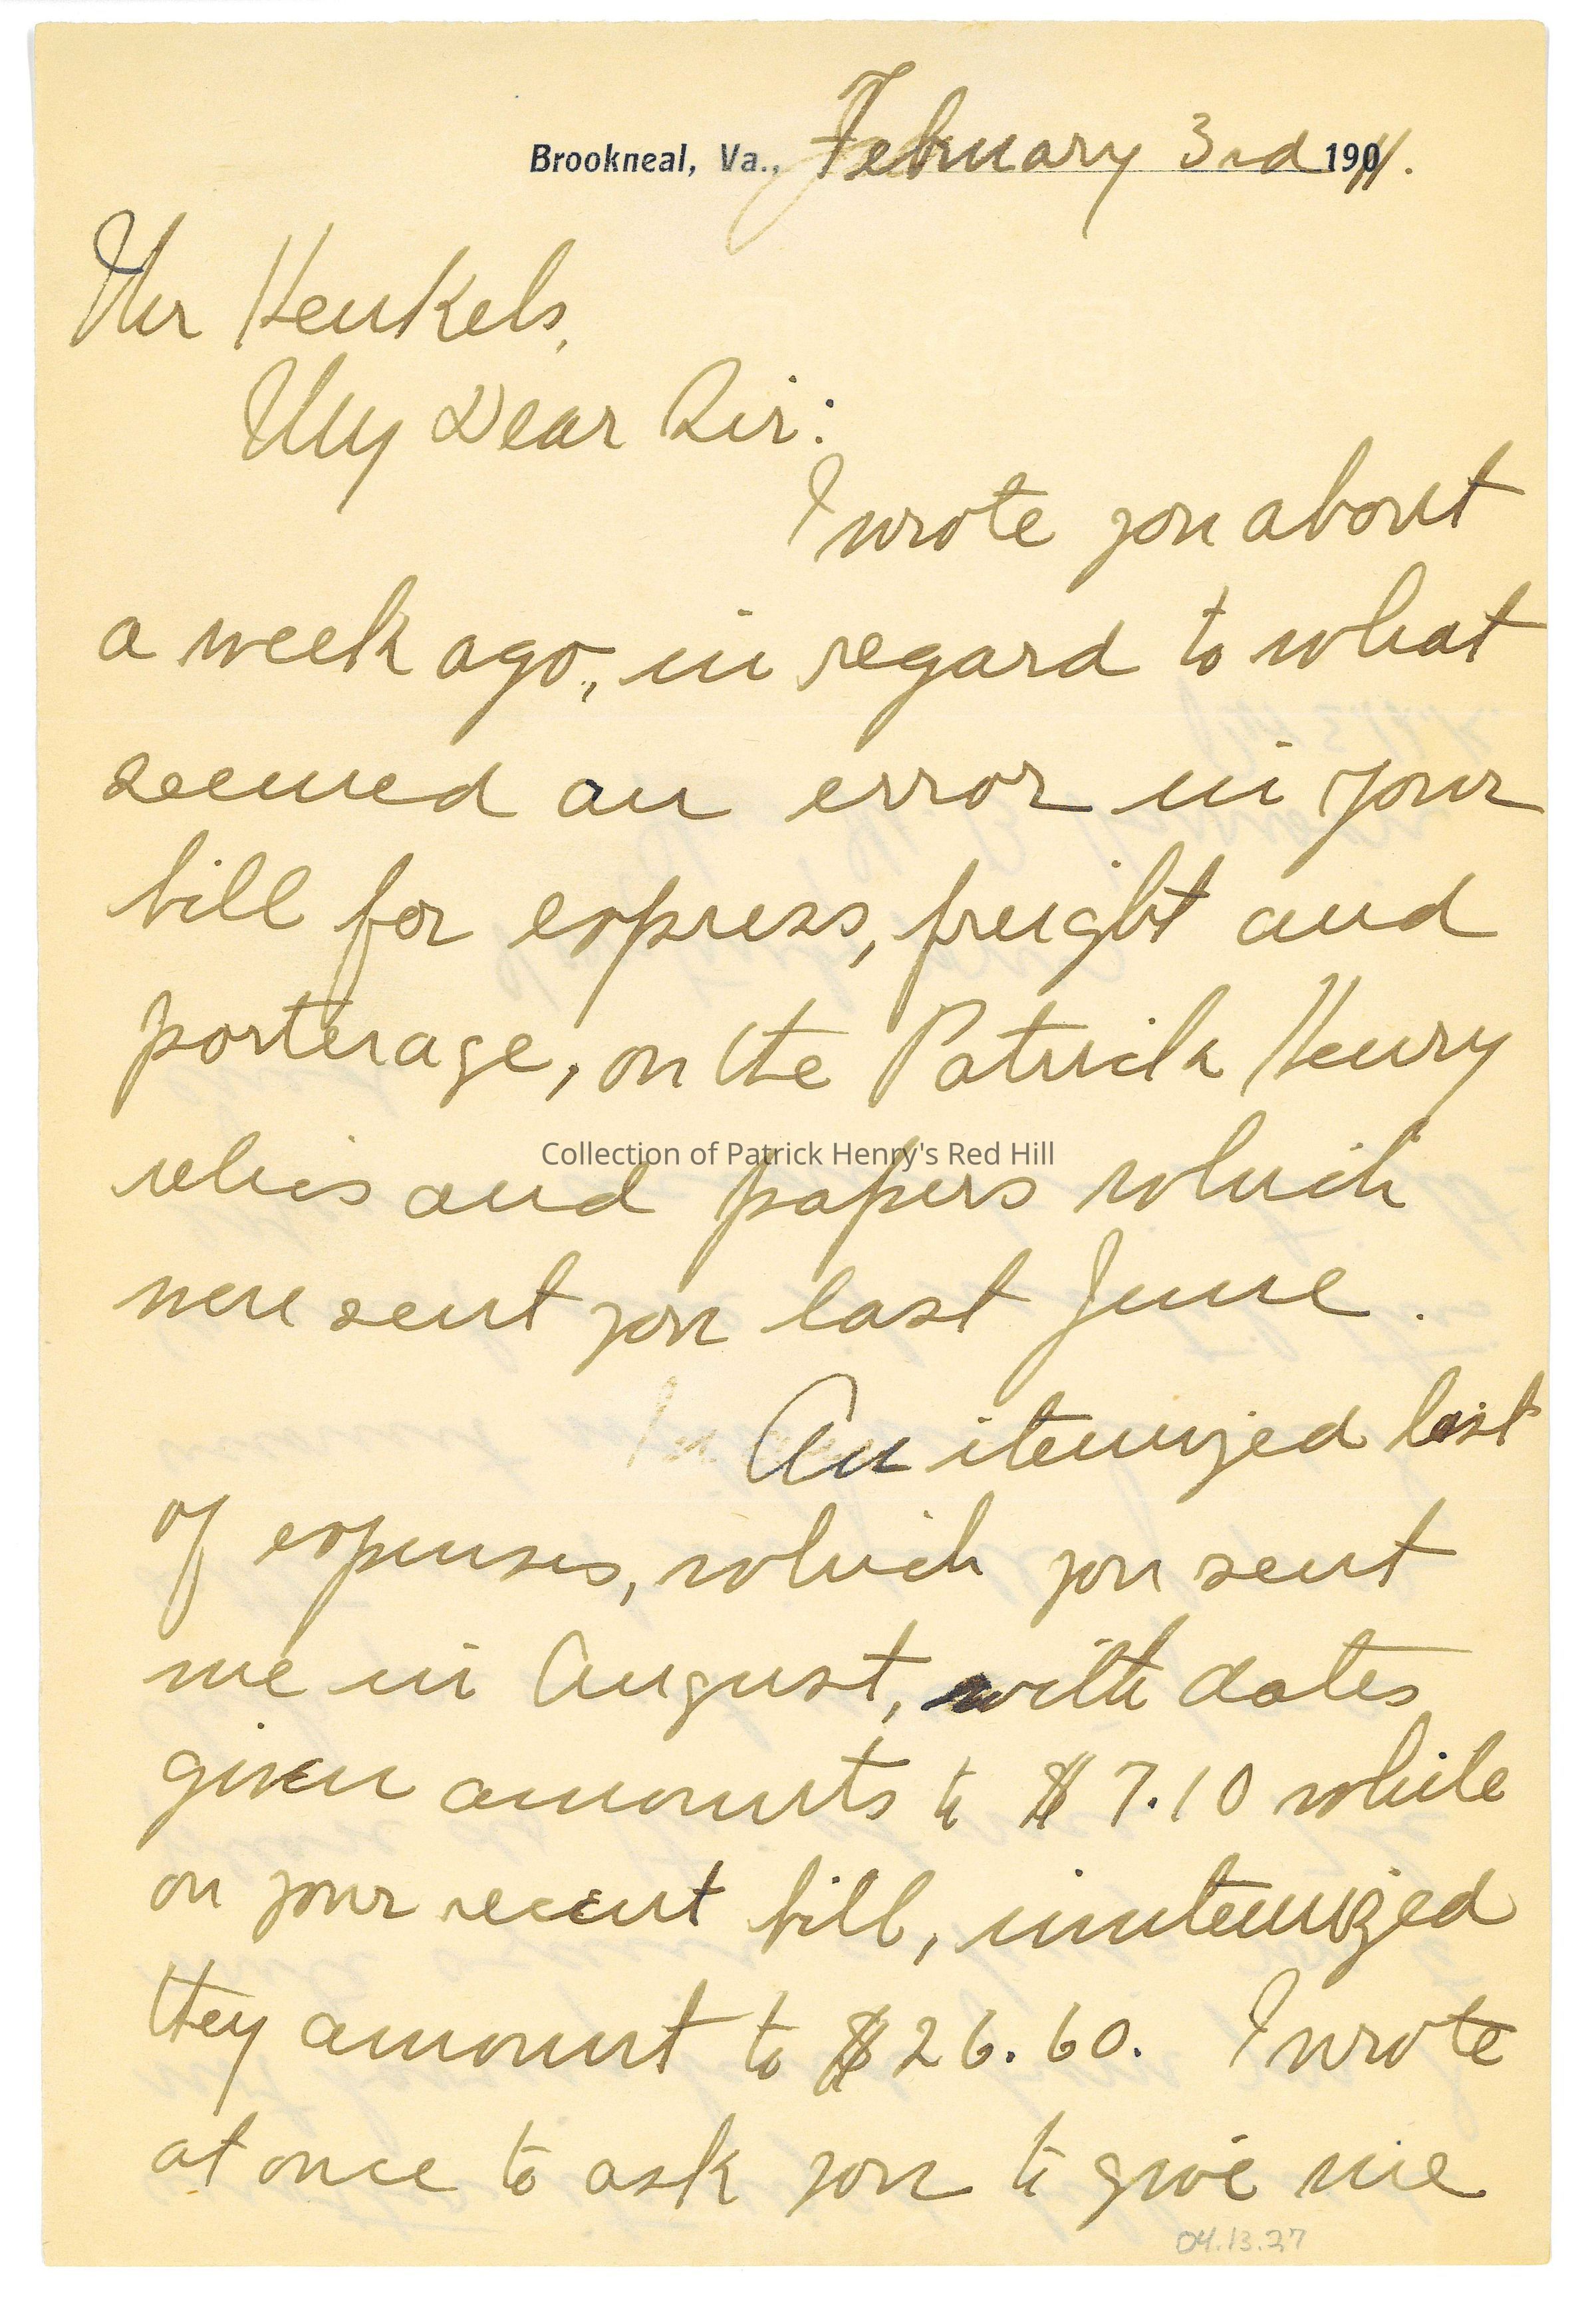 Brookneal, Va., February 3rd 1911.
Mr Henkels,
My Dear Sir:
I wrote you about
a week ago, in regard to what
seemed an error in your
bill for express, freight and
porterage, on the Patrick Henry
relics and papers which
Collection of Patrick Henry's Red Hill
were sent you last June.
An itemized list
of expenses, which you sent
me in August, with dates
given amounts to $7.10 while
on your recent bill, unitemized
they amount to $26.60. I wrote
at once to ask you to give me
04.13.27